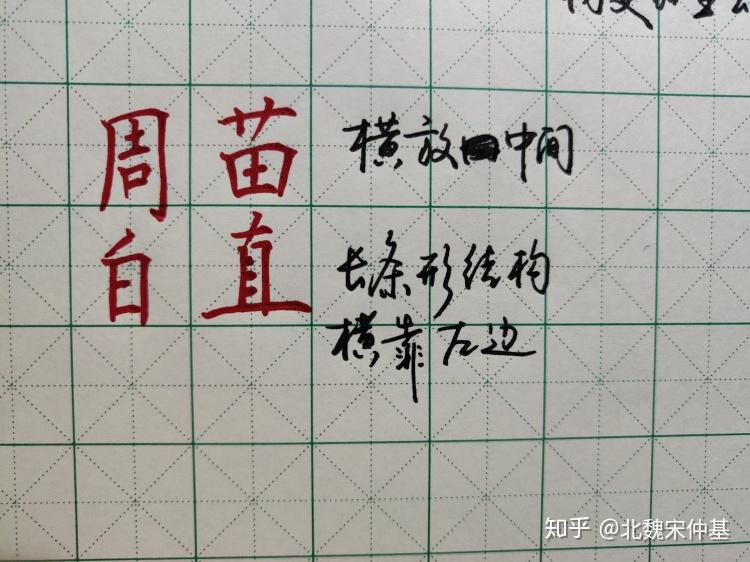 周 苗 横放中间
白 直 长条形结构
横靠左边
知乎 @北魏宋仲基